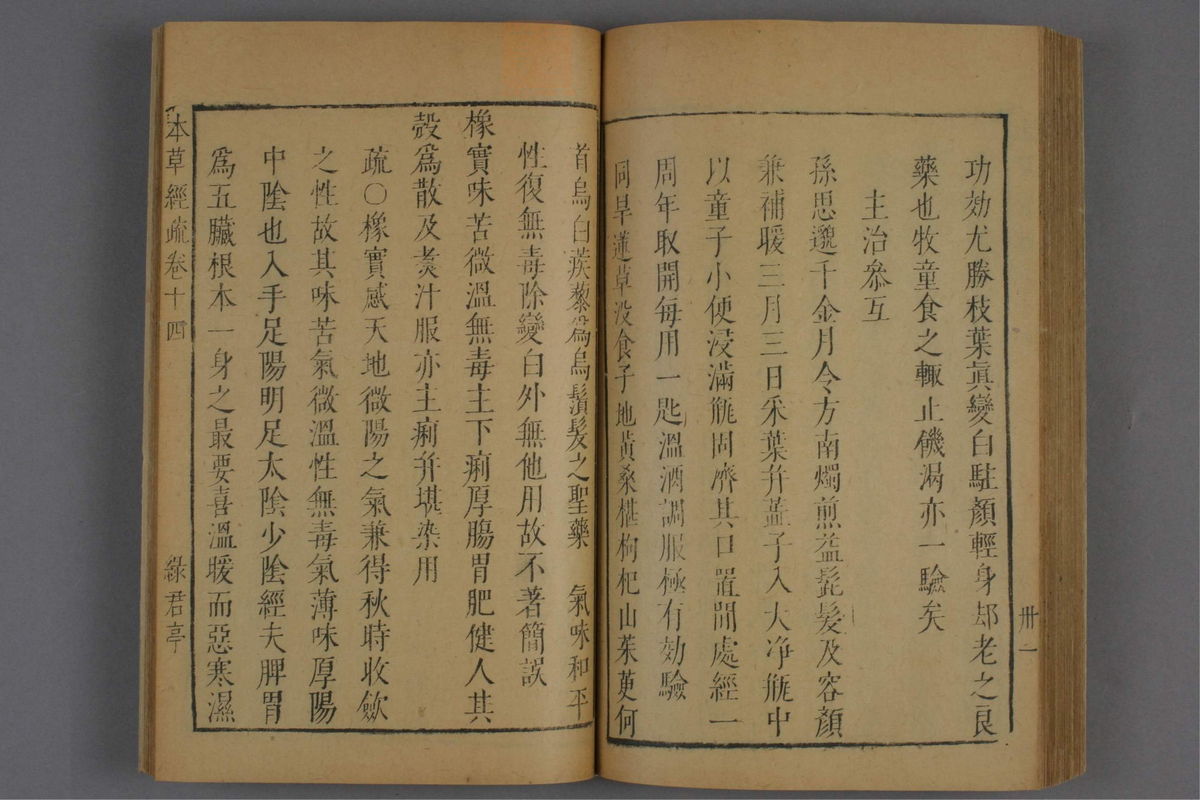 功効尤勝枝葉眞變白駐顏輕身却老之良
藥也牧童食之輒止饑渴亦一驗矣
主治叅互
孫思邈千金月令方南燭煎益髭髮及容顏
兼補暖三月三日采葉并蘂子入大淨甁中
以童子小便浸滿甁固濟其口置閒處經一
周年取開每用一匙溫酒調服極有効驗
同旱蓮草没食子地黃桑椹枸杞山茱萸何
卅一
首烏白蒺藜爲烏鬚髮之聖藥　氣味和平
性復無毒除變白外無他用故不著簡誤
橡實味苦微溫無毒主下痢厚腸胃肥健人其
殼爲散及煑汁服亦主痢并堪染用
疏〇橡實感天地微陽之氣兼得秋時收斂
之性故其味苦氣微溫性無毒氣薄味厚陽
中陰也入手足陽明足太陰少陰經夫脾胃
爲五臟根本一身之最要喜溫暖而惡寒濕
本草經疏卷十四
綠君亭